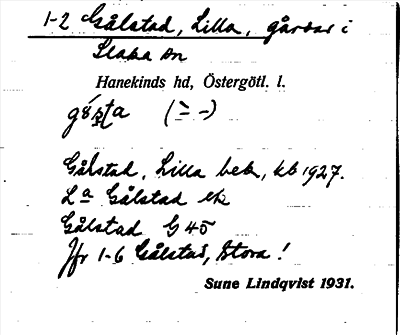 1-2 Gålstad, Lilla, gårdar i
Slaka sn
Hanekinds hd, Östergötl. l.
(´ -)
Gålstad, Lilla bebr, kb 1927.
La Gålstad ek
Gålstad G 45
Jfr 1-6 Gålstad, Stora!
Sune Lindqvist 1931.